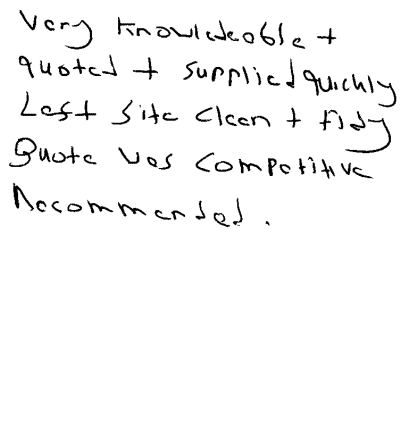 Very Knowledeable +
quoted + supplied quickly
Left site clean + tidy
Quote was competitive
Recommended.